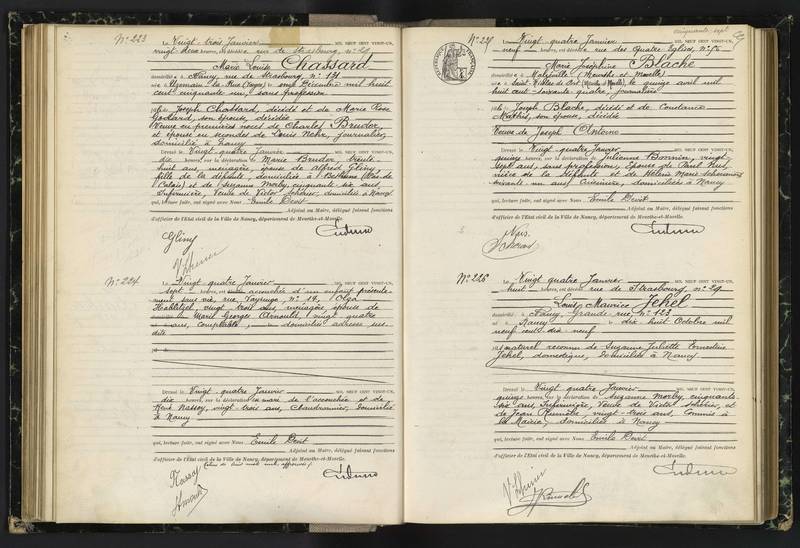 N° 223
Le Vingt trois Janvier MIL NEUF CENT VINGT-UN,
vingt deux heures, est décédée rue de Strasbourg, n° 29
Marie Louise Chassard
domiciliée à Nancy, rue de Strasbourg, n° 131
née à Uzemain-la-Rue (Vosges) le onze Décembre mil huit
cent cinquante un, sans profession
fille de Joseph Chassard, décédé et de Marie Rose
Godard, son épouse, décédée
Veuve en premières noces de Charles Bruder,
et épouse en secondes de Louis Nehr, journalier,
domicilié à Nancy
Dressé le Vingt-quatre Janvier MIL NEUF CENT VINGT-UN,
dix heures, sur la déclaration de Marie Bruder, trente-
huit ans, ménagère, épouse de Alfred Gliny,
fille de la défunte, domiciliée à Béthune (Pas de
Calais) et de Suzanne Morby, cinquante six ans,
Infirmière, Veuve de Victor Schérier, domiciliée à Nancy
qui, lecture faite, ont signé avec Nous Emile Devit
Adjoint au Maire, délégué faisant fonctions
d'officier de l'Etat civil de la Ville de Nancy, département de Meurthe-et-Moselle.
Gliny
N° 224
Le Vingt quatre Janvier MIL NEUF CENT VINGT-UN,
sept heures, est accouchée d'un enfant présenté-
ment sans vie, rue n° 14, Olga
Habtitzel, vingt trois ans, ménagère épouse de
Marie Georges Arnoult, vingt quatre
ans, comptable, domicilié adresse sus
dite
Dressé le Vingt-quatre Janvier MIL NEUF CENT VINGT-UN,
dix heures, sur la déclaration du mari de l'accouchée et de
René Nassoy, vingt trois ans, Chaudronnier, domicilié
à Nancy
qui, lecture faite, ont signé avec Nous Emile Devit
Adjoint au Maire, délégué faisant fonctions
d'officier de l'Etat civil de la Ville de Nancy, département de Meurthe-et-Moselle.
Nassoy
N° 225
Le Vingt quatre Janvier MIL NEUF CENT VINGT-UN,
neuf heures, est décédée rue des Quatre Eglises, n°
Marie Joséphine Blache
domiciliée à Malzéville (Meurthe et Moselle)
née à Saint le quinze avril mil
huit cent soixante quatre, journalière
fille de Joseph Blache, décédé et de Constance
Mathis, son épouse, décédée
Veuve de Joseph Antoine
Dressé le Vingt quatre Janvier MIL NEUF CENT VINGT-UN,
quinze heures, sur la déclaration de Julienne Bonnier, vingt
sept ans, sans profession, épouse de Paul
nièce de la défunte et de Hélène Marie
soixante un ans, Cuisinière, domiciliées à Nancy
qui, lecture faite, ont signé avec Nous Emile Devit
Adjoint au Maire, délégué faisant fonctions
d'officier de l'Etat civil de la Ville de Nancy, département de Meurthe-et-Moselle.
N° 226
Le Vingt quatre Janvier MIL NEUF CENT VINGT-UN,
huit heures, est décédé rue de Strasbourg, n° 29
Louis Maurice Jehel
domicilié à Nancy Grande rue n° 123
né à Nancy le dix huit Octobre mil
neuf cent dix neuf
fils naturel reconnu de Suzanne Juliette Ernestine
Jehel, domestique, domiciliée à Nancy
Dressé le Vingt quatre Janvier MIL NEUF CENT VINGT-UN,
quinze heures, sur la déclaration de Suzanne Morby, cinquante
six ans, Infirmière, Veuve de Victor Schérier, et
de Jean vingt trois ans, Commis à
la Mairie, domiciliés à Nancy
qui, lecture faite, ont signé avec Nous Emile Devit
Adjoint au Maire, délégué faisant fonctions
d'officier de l'Etat civil de la Ville de Nancy, département de Meurthe-et-Moselle.